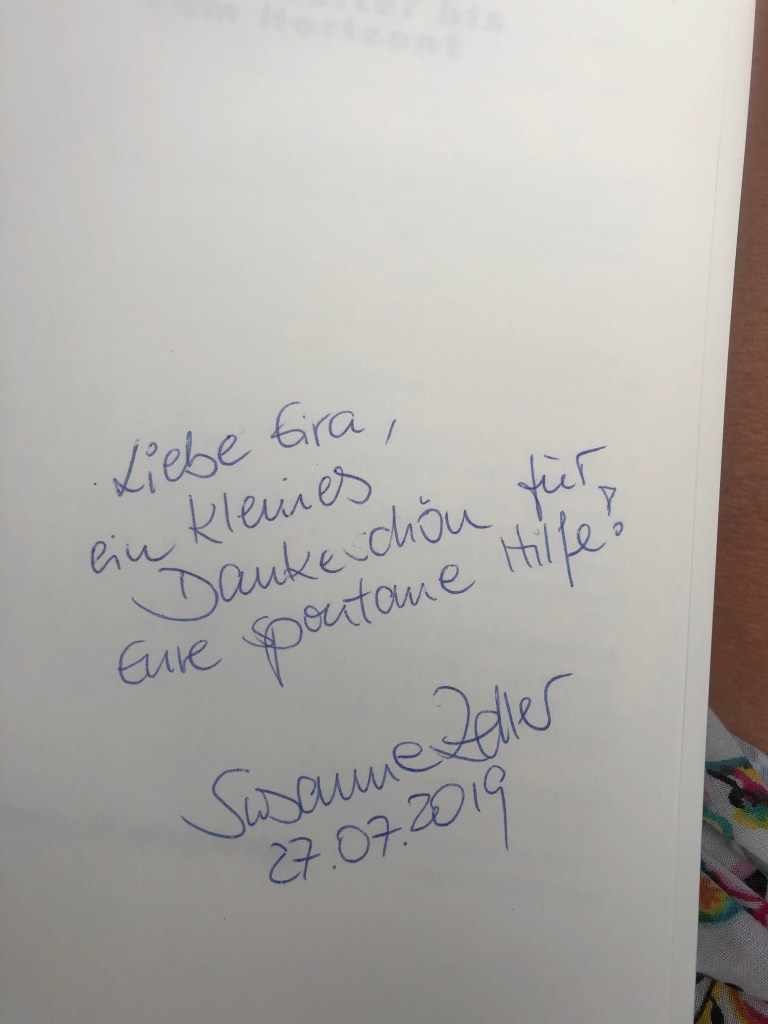 bis
zum Horizont
Liebe Eira,
ein kleines
Dankeschön für
Eure spontane Hilfe!
Susanne Zeller
27.07.2019